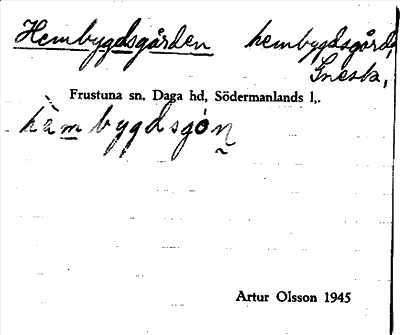 Hembygdsgården hembygdsgård,
Gnesta,
Frustuna sn, Daga hd, Södermanlands l,.
hè̀m bygdsgo̊n
Artur Olsson 1945